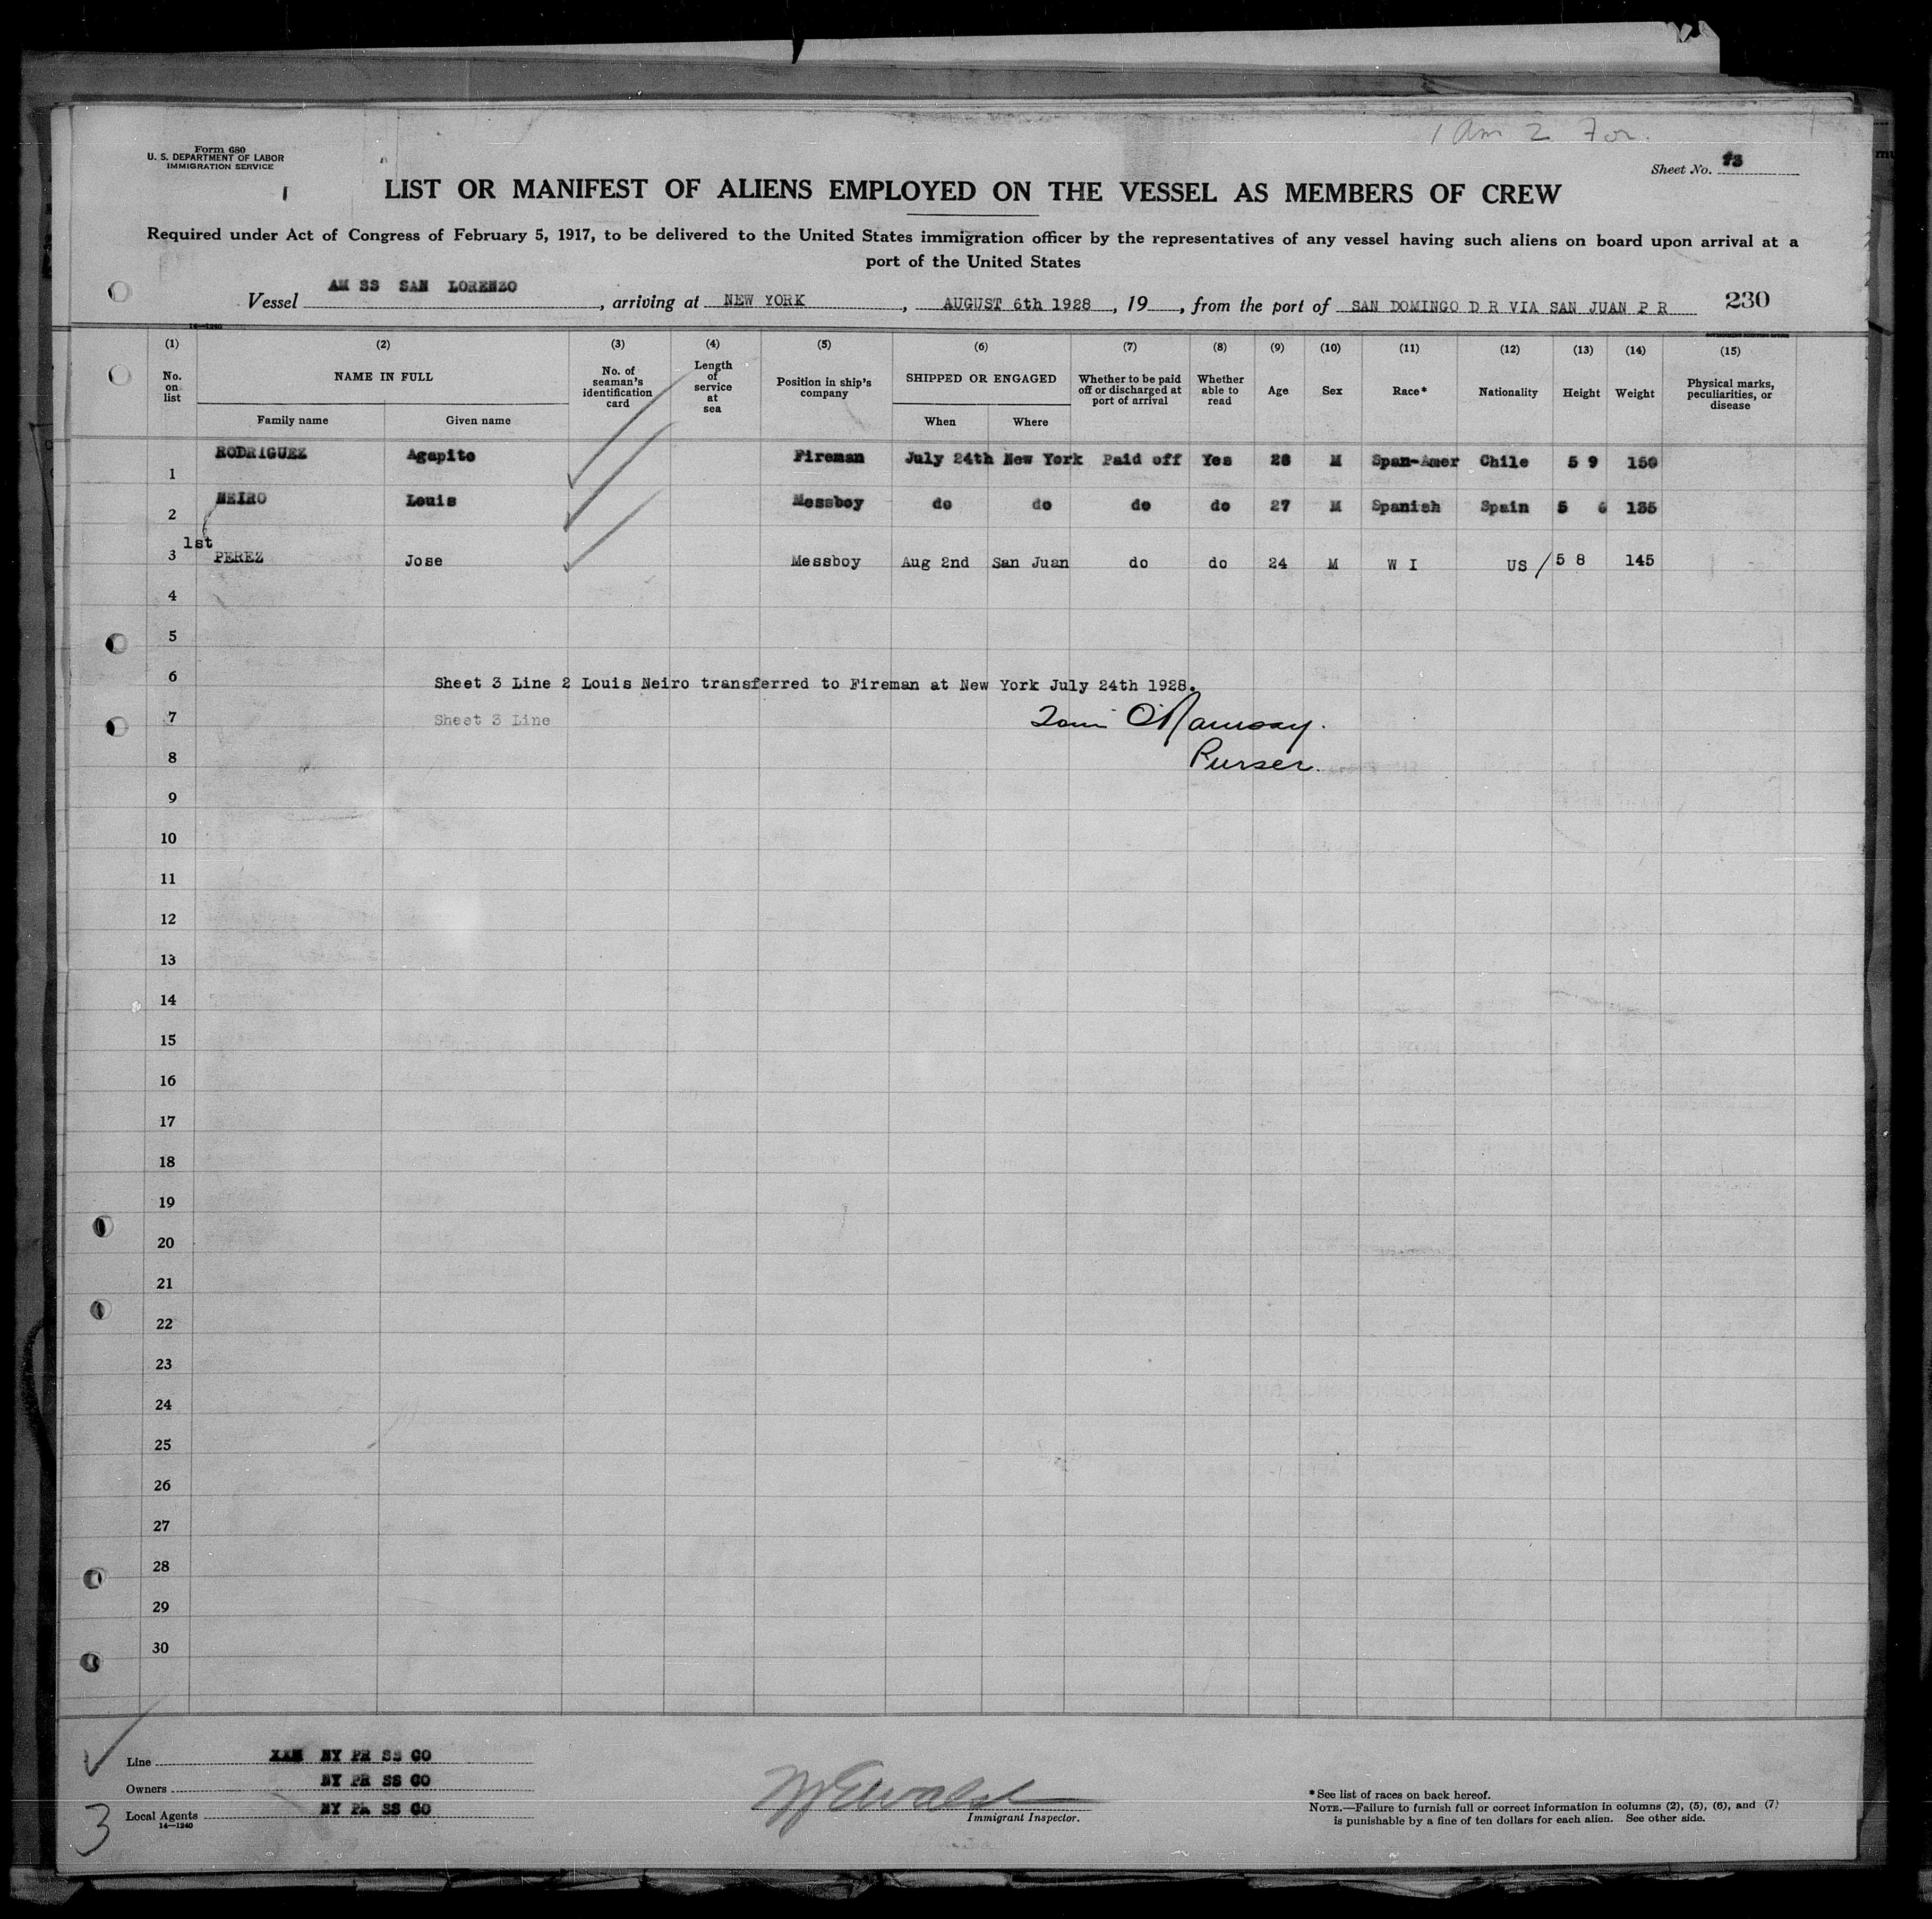 1 Am 2 For.
Form 680
U. S. DEPARTMENT OF LABOR
IMMIGRATION SERVICE
Sheet No.
LIST OR MANIFEST OF ALIENS EMPLOYED ON THE VESSEL AS MEMBERS OF CREW
Required under Act of Congress of February 5, 1917, to be delivered to the United States immigration officer by the representatives of any vessel having such aliens on board upon arrival at a
port of the United States
Vessel AM SS SAN LORENZO, arriving at NEW YORK, AUGUST 6th 1928, 19, from the port of SAN DOMINGO D R VIA SAN JUAN P R 230
14—1240
(1) (2) (3) (4) (5) (6) (7) (8) (9) (10) (11) (12) (13) (14) (15)
No. on list NAME IN FULL No. of seaman's identification card Length of service at sea Position in ship's company SHIPPED OR ENGAGED Whether to be paid off or discharged at port of arrival Whether able to read Age Sex Race* Nationality Height Weight Physical marks, peculiarities, or disease
Family name Given name When Where
1 RODRIGUEZ Agapito Fireman July 24th New York Paid off Yes 28 M Span-Amer Chile 5 9 150
2 NEIRO Louis Messboy do do do do 27 M Spanish Spain 5 6 135
1st
3 PEREZ Jose Messboy Aug 2nd San Juan do do 24 M W I US / 5 8 145
4
5
6 Sheet 3 Line 2 Louis Neiro transferred to Fireman at New York July 24th 1928.
7 Sheet 3 Line O'Ramsay.
8 Purser.
9
10
11
12
13
14
15
16
17
18
19
20
21
22
23
24
25
26
27
28
29
30
Line NY PR SS CO
Owners NY PR SS CO
Local Agents NY PR SS CO
14—1240
3
Immigrant Inspector.
*See list of races on back hereof.
NOTE.—Failure to furnish full or correct information in columns (2), (5), (6), and (7)
is punishable by a fine of ten dollars for each alien. See other side.